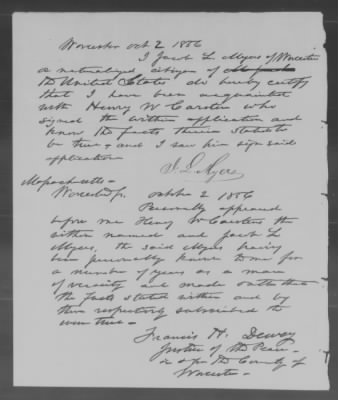 Worcester Oct 2 1856
I Jacob L Myers of Worcester
a naturalized citizen of
the United States do hereby certify
that I have been acquainted
with Henry W Carsten who
signed the within application and
know the facts therein stated to
be true & and I saw him sign said
application
J. L. Myers
Massachusetts
Worcester ss. October 2 1856
Personally appeared
before me Henry W Carsten the
within named and Jacob L
Myers, the said Myers having
been personally known to me for
a number of years as a man
of veracity and made oath that
the facts stated within and by
them respectively subscribed to
were true -
Francis H. Dewey
Justice of the Peace
in & for the County of
Worcester -